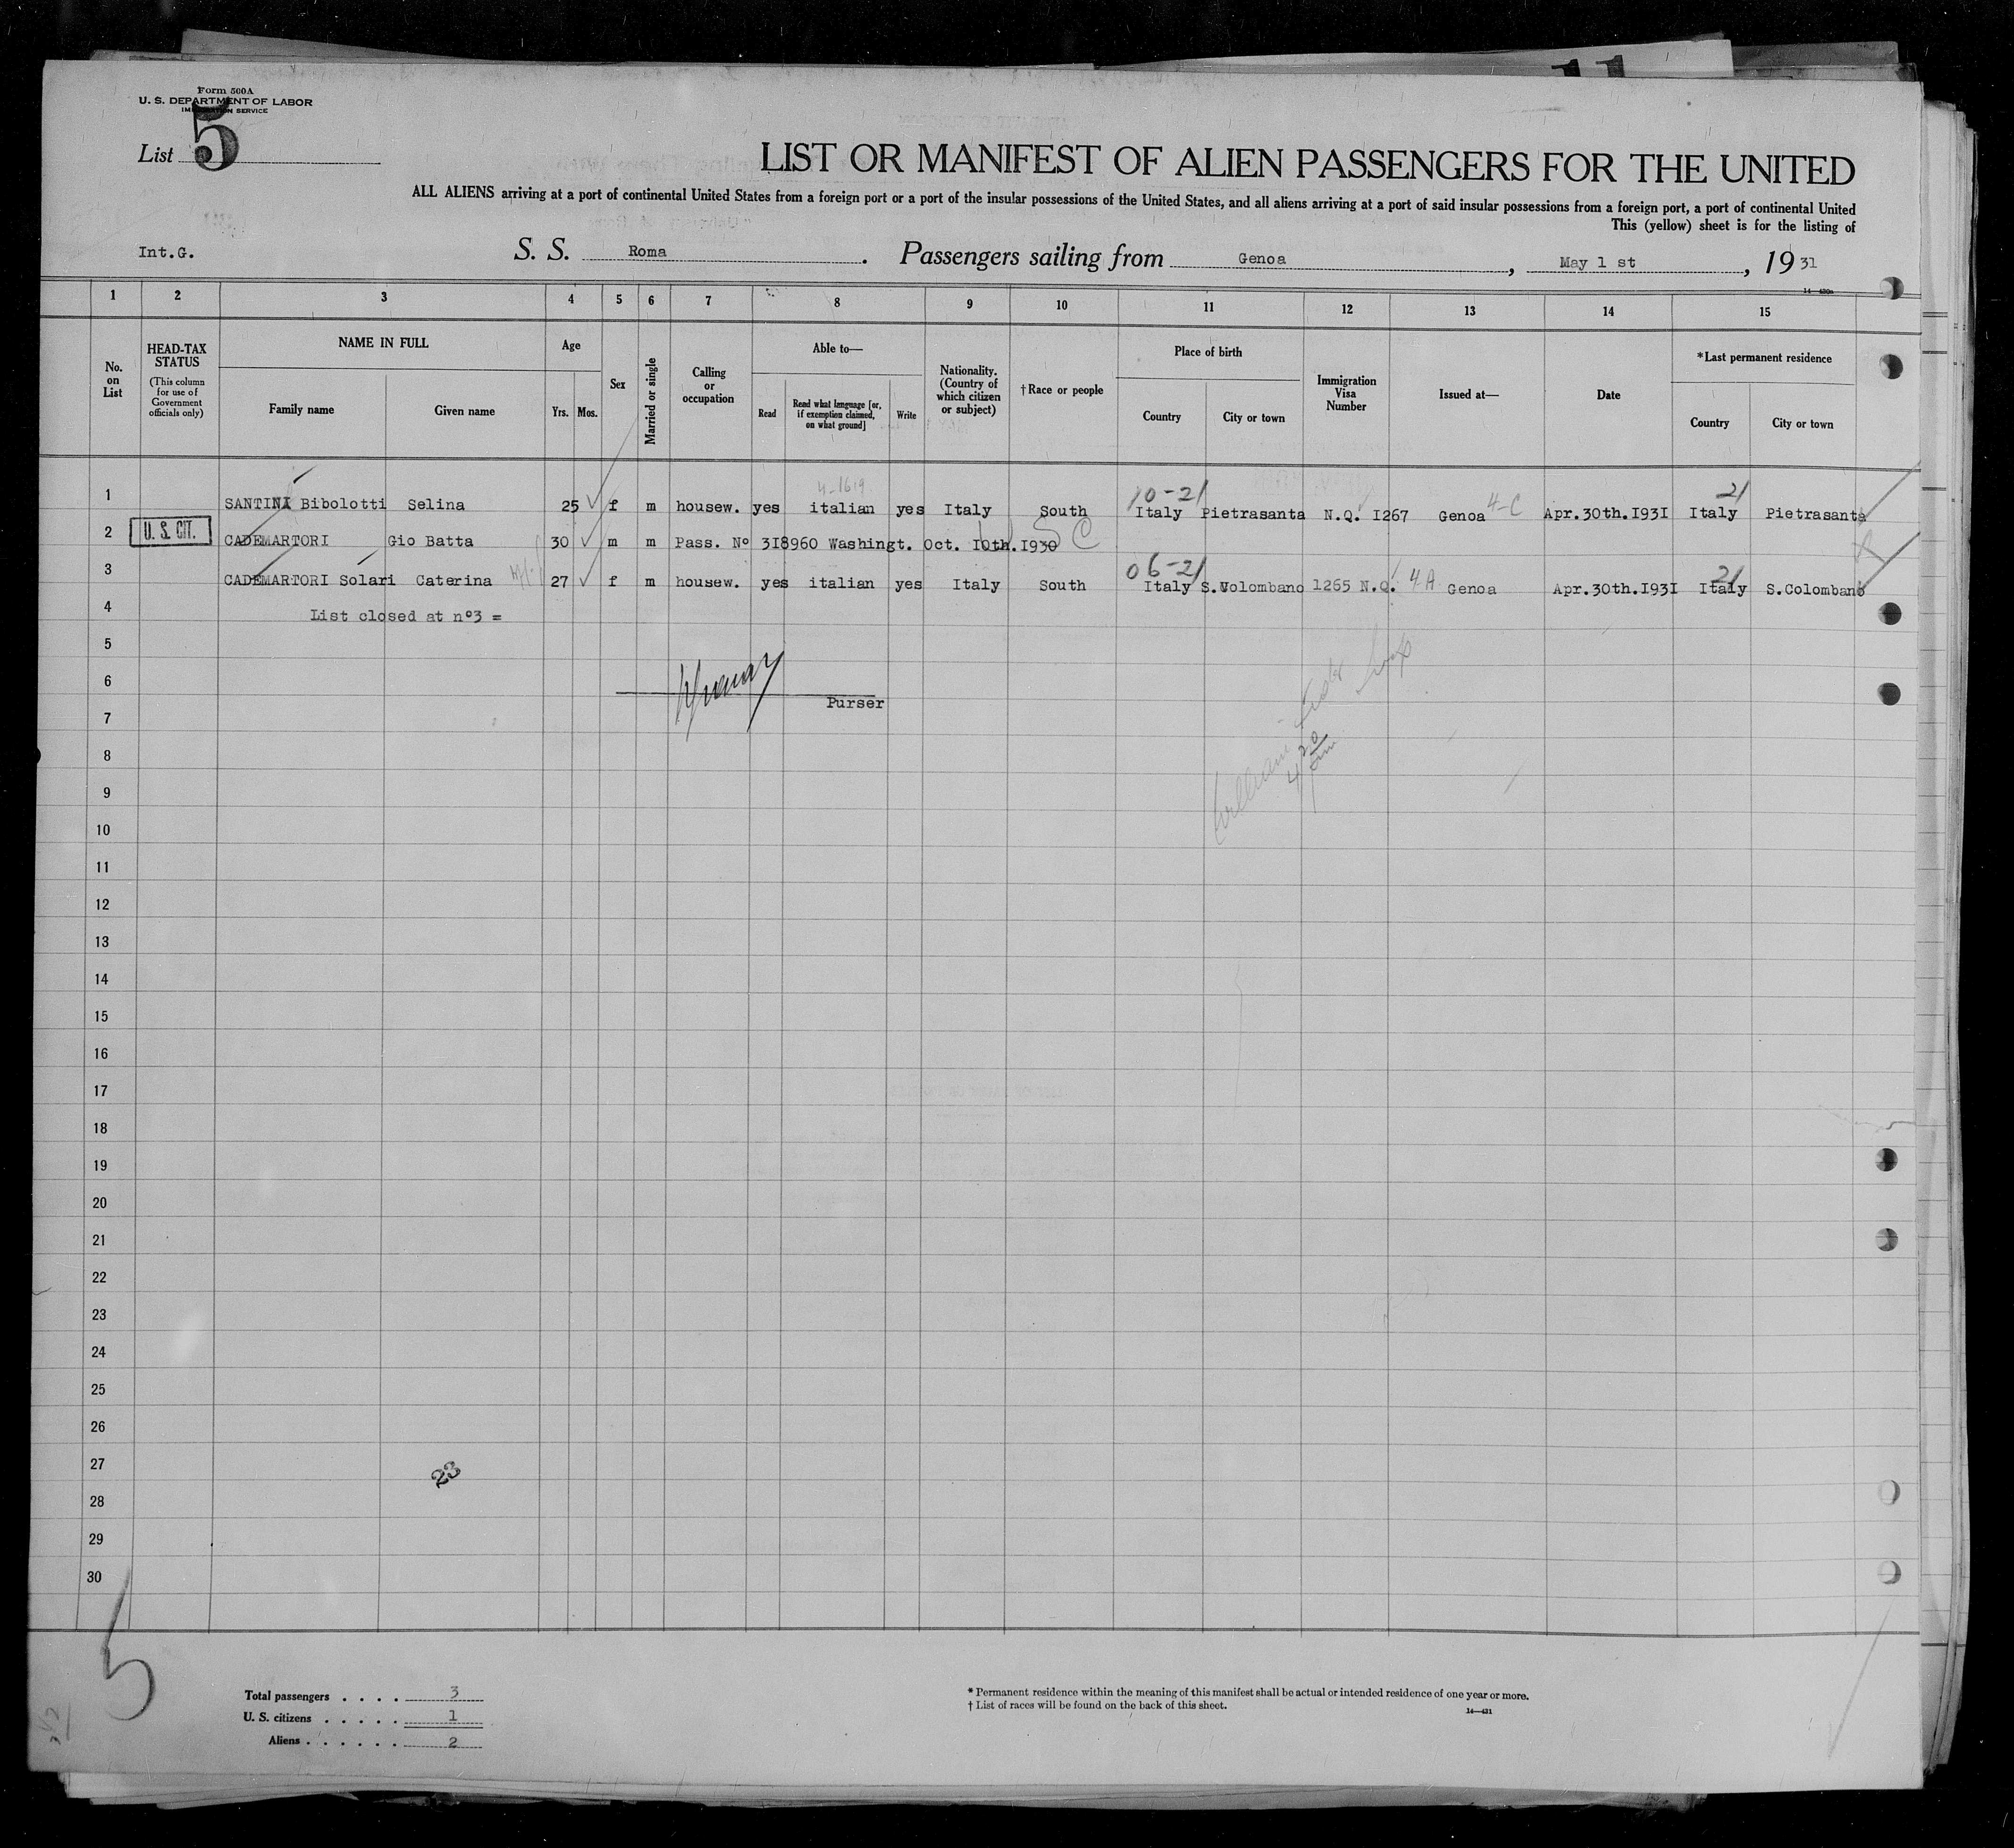 Form 500A
U. S. DEPARTMENT OF LABOR
IMMIGRATION SERVICE
List 5
LIST OR MANIFEST OF ALIEN PASSENGERS FOR THE UNITED
ALL ALIENS arriving at a port of continental United States from a foreign port or a port of the insular possessions of the United States, and all aliens arriving at a port of said insular possessions from a foreign port, a port of continental United
This (yellow) sheet is for the listing of
Int.G. S. S. Roma . Passengers sailing from Genoa , May 1 st , 1931
1 2 3 4 5 6 7 8 9 10 11 12 13 14 15
No. on List
HEAD-TAX STATUS
(This column for use of Government officials only)
NAME IN FULL
Family name Given name
Age
Yrs. Mos.
Sex
Married or single
Calling or occupation
Able to—
Read
Read what language [or, if exemption claimed, on what ground]
Write
Nationality. (Country of which citizen or subject)
†Race or people
Place of birth
Country City or town
Immigration Visa Number
Issued at—
Date
*Last permanent residence
Country City or town
4-1619 10-21 21
1 SANTINI Bibolotti Selina 25 f m housew. yes italian yes Italy South Italy Pietrasanta N.Q. I267 Genoa 4-C Apr.30th.I93I Italy Pietrasanta
2 U. S. CIT. CADEMARTORI Gio Batta 30 m m Pass. Nº 3I8960 Washingt. Oct. I0th.I930 U S C
06-21 21
3 CADEMARTORI Solari Caterina 27 f m housew. yes italian yes Italy South Italy S.Colombano 1265 N.Q. 4A Genoa Apr.30th.I93I Italy S.Colombano
4 List closed at nº3 =
5
6
Purser
7
8
9
10
11
12
13
14
15
16
17
18
19
20
21
22
23
24
25
26
27
23
28
29
30
5
Total passengers . . . . 3
U. S. citizens . . . . . 1
Aliens . . . . . . 2
* Permanent residence within the meaning of this manifest shall be actual or intended residence of one year or more.
† List of races will be found on the back of this sheet.
14—421